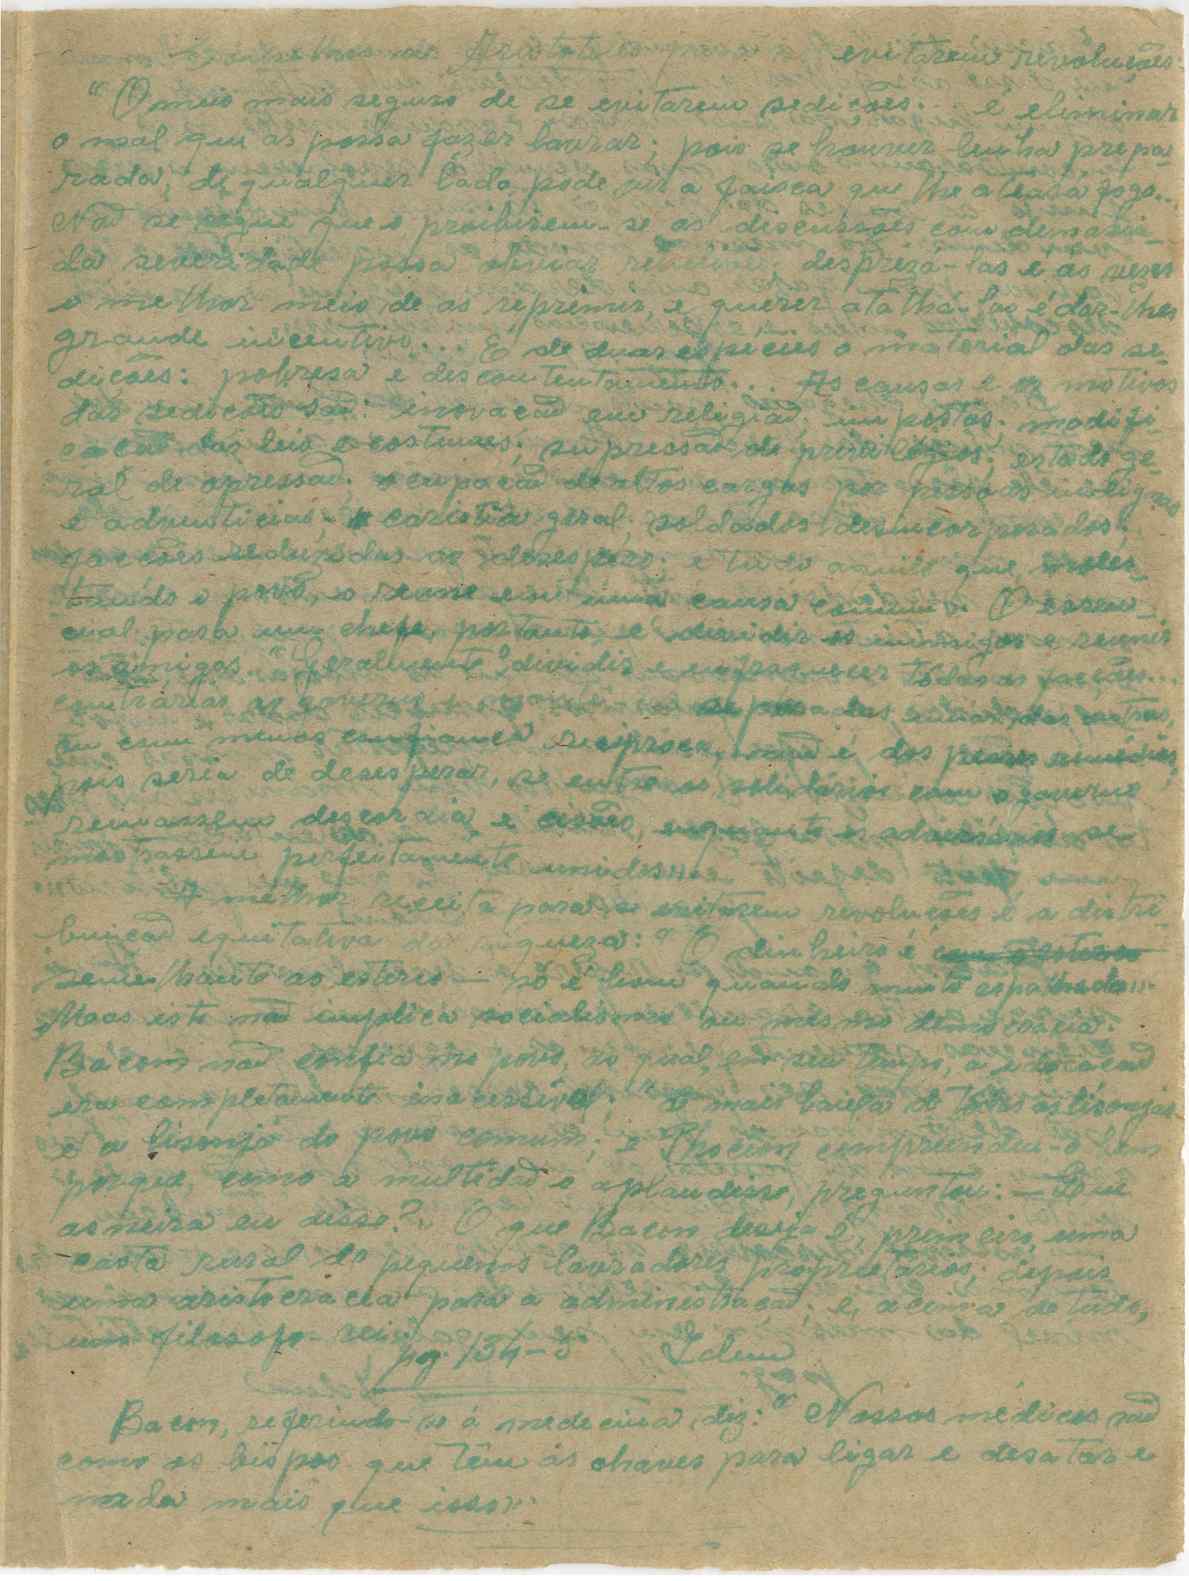 Conselhos de Aristoteles para se evitarem revoluções:
"O meio mais seguro de se evitarem sedições... é eliminar
o mal que as possa fazer lavrar; pois se houver lenha prepa-
rada, de qualquer lado pode vir a faisca que lhe ateará fogo...
Não se segue que o proibirem-se as discussões com demasia-
da severidade possa obviar rebeliões; desprezá-las é as vezes
o melhor meio de as reprimir, e querer atalhá-las é dar-lhes
grande incentivo... É de duas espécies o material das se-
dições: pobresa e descontentamento... As causas e os motivos
das sedições são: inovação em religião; impostos; modifi-
cação das leis e costumes; supressão de privilégios; estado ge-
ral de opressão; ocupação de altos cargos por pessoas indignas
e adventicias; carestia geral; soldados desincorporados;
facções reduzidas ao desespero; e tudo aquilo que, moles-
tando o povo, o reune em uma causa comum. O essen-
cial para um chefe, portanto, é dividir os inimigos e reunir
os amigos. "Geralmente, dividir e enfraquecer todas as facções...
contrárias ao governo e separadas umas das outras,
ou com menos confiança reciproca, não é dos peores remédios,
pois seria de desesperar, se entre os solidários com o governo
reinassem discordia e cisões, enquanto os adversários se
mostrassem perfeitamente unidos...
A melhor receita para se evitarem revoluções é a distri-
buição equitativa da riqueza: "O dinheiro é
semelhante ao esterco — só é bom quando muito espalhado...
Mas isto não implica socialismo ou mesmo democracia.
Bacon não confia no povo, ao qual, em seu tempo, a educação
era completamente inacessível; "a mais baixa de todas as lisonjas
é a lisonja do povo comum; e Phocion compreendeu-o bem
porque, como a multidão o aplaudisse, preguntou: — Que
asneira eu disse?. O que Bacon deseja é, primeiro, uma
casta rural de pequenos lavradores proprietários; depois
uma aristocracia para a administração; e, acima de tudo,
um filosofo-rei.
pg. 134-5 Idem
Bacon, referindo-se á medecina, diz: "Nossos médicos são
como os bispos que têm as chaves para ligar e desatar e
nada mais que isso".